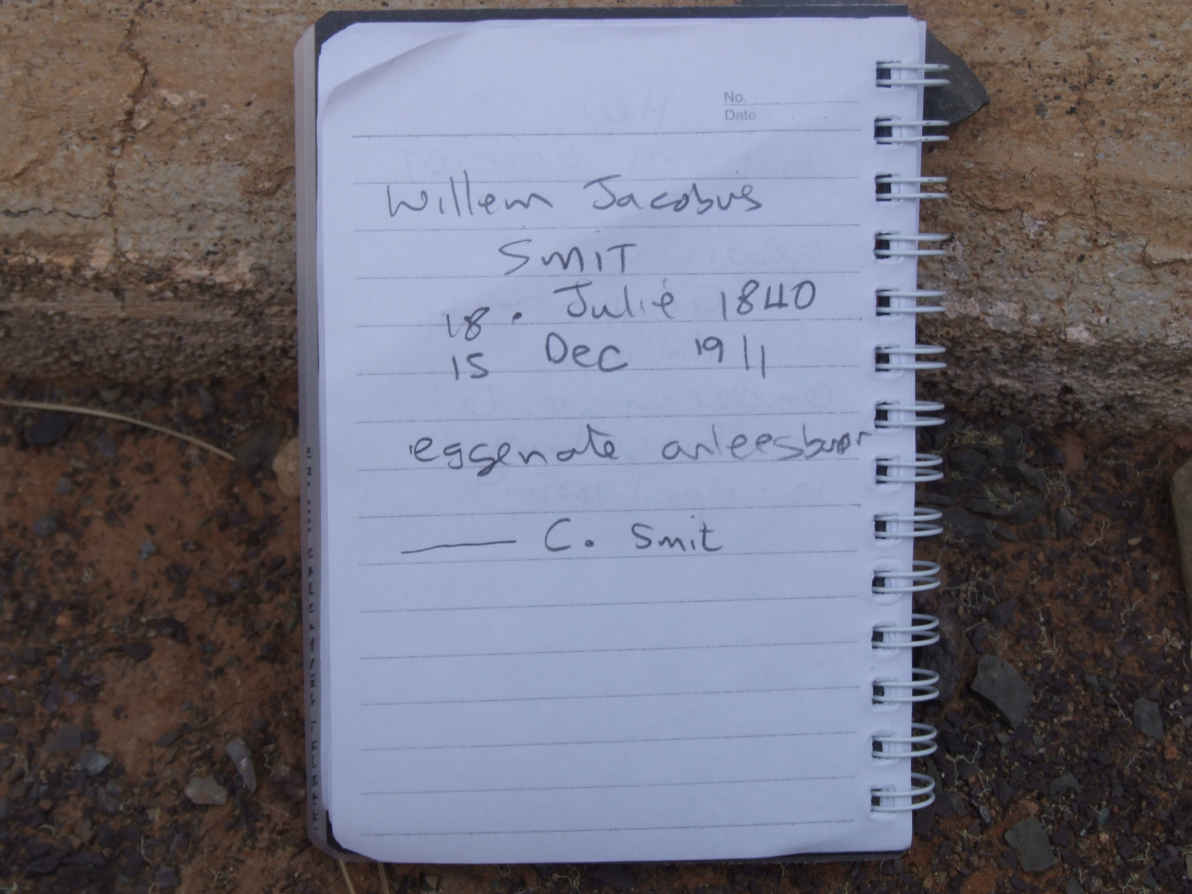 No.
Date
Willem Jacobus
SMIT
18. Julie 1840
15 Dec 1911
eggenote onleesbaar
C. Smit